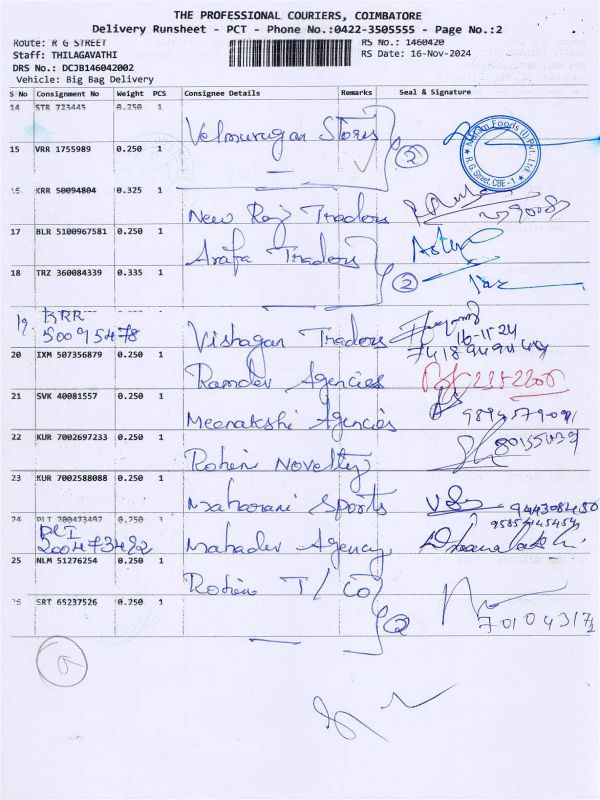 THE PROFESSIONAL COURIERS, COIMBATORE
Delivery Runsheet - PCT - Phone No.:0422-3505555 - Page No.:2
Route: R G STREET
RS No.: 1460420
Staff: THILAGAVATHI
RS Date: 16-Nov-2024
DRS No.: DCJB146042002
Vehicle: Big Bag Delivery
S No Consignment No Weight PCS Consignee Details Remarks Seal & Signature
14 STR 723445 0.250 1
Velmurugan Stores
2
Naram Foods (I) Pvt. Ltd. R.G Street, CBE - 1
15 VRR 1755989 0.250 1
16 KRR 50094804 0.325 1
New Raj Traders
17 BLR 5100967581 0.250 1
Arafa Traders
18 TRZ 360084339 0.335 1
2
19 KRR
50095478
Vishagan Traders
16-11-24
20 IXM 507356879 0.250 1
Ramdev Agencies
21 SVK 40081557 0.250 1
Meenakshi Agencies
22 KUR 7002697233 0.250 1
Rohini Novelty
23 KUR 7002588088 0.250 1
Maharani Sports
24 PLI 200473492 0.250 1
PLI
200473492
Mahadev Agency
25 NLM 51276254 0.250 1
Rohini T/Co
26 SRT 65237526 0.250 1
2